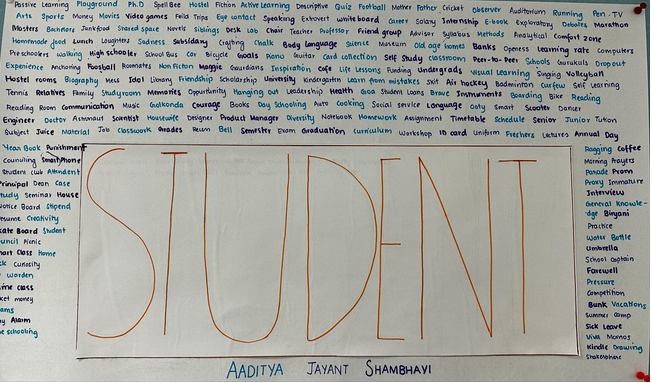 Passive Learning Playground Ph.D Spell Bee Hostel Fiction Active Learning Descriptive Quiz Football Mother Father Cricket Observer Auditorium Running Pen - TV
Arts Sports Money Movies Video games Feild Trips Eye contact Speaking Extrovert white board Career Salary Internship E-book Exploratory Debates Marathon
Masters Bachelors Junkfood Shared space Novels Siblings Desk Lab Chair Teacher Professor Friend group Advisor Syllabus Methods Analytical Comfort zone
Homemade food Lunch Laughters Sadness Subsidiary Crafting Chalk Body Language Science Museum Old age homes Banks Openess Learning rate Computers
Preschoolers Walking High schooler School Bus Car Bicycle Goals Piano Guitar Card collection Self Study classroom Peer-to-Peer Schools Gurukuls Dropout
Experience Anchoring Football Roommates Non Fiction Maggie Guardians Inspiration Cafe Life Lessons Funding Undergrads Visual Learning Singing Volleyball
Hostel rooms Biography Mess Idol Library Friendship Scholarship University Kindergarten Learn from mistakes Skit Air hockey Badminton Curfew Self Learning
Tennis Relatives Family Studyroom Memories Opportunity Hanging out Leadership Health Goa Student Loans Brave Instruments Boarding Bike Reading
Reading Room Communication Music Golkonda Courage Books Day Schooling Auto Cooking Social service Language Ooty Smart Scooter Dancer
Engineer Doctor Astronaut Scientist Housewife Designer Product Manager Diversity Notebook Homework Assignment Timetable Schedule Senior Junior Tution
Subject Juice Material Job Classwork Grades Rerum Bell Semester Exam Graduation Curriculum Workshop ID card Uniform Freshers Lectures Annual Day
Year Book Punishment
Counciling Smartphone
Student club Attendent
Principal Dean Case
Study Seminar House
Notice Board Stipend
Resume Creativity
Skate Board Student
Council Picnic
Short Class Home
Curiosity
Worden
line class
ket money
ams
Alarm
schooling
Ragging Coffee
Morning Prayers
Parade Prom
Proxy Immature
Interview
General Knowle-
dge Biryani
Practice
Water Bottle
Umbrella
School captain
Farewell
Pressure
Competition
Bunk Vacations
Summer Camp
Sick Leave
Viva Momos
Kindle Drawing
Stakeholders
STUDENT
AADITYA JAYANT SHAMBHAVI